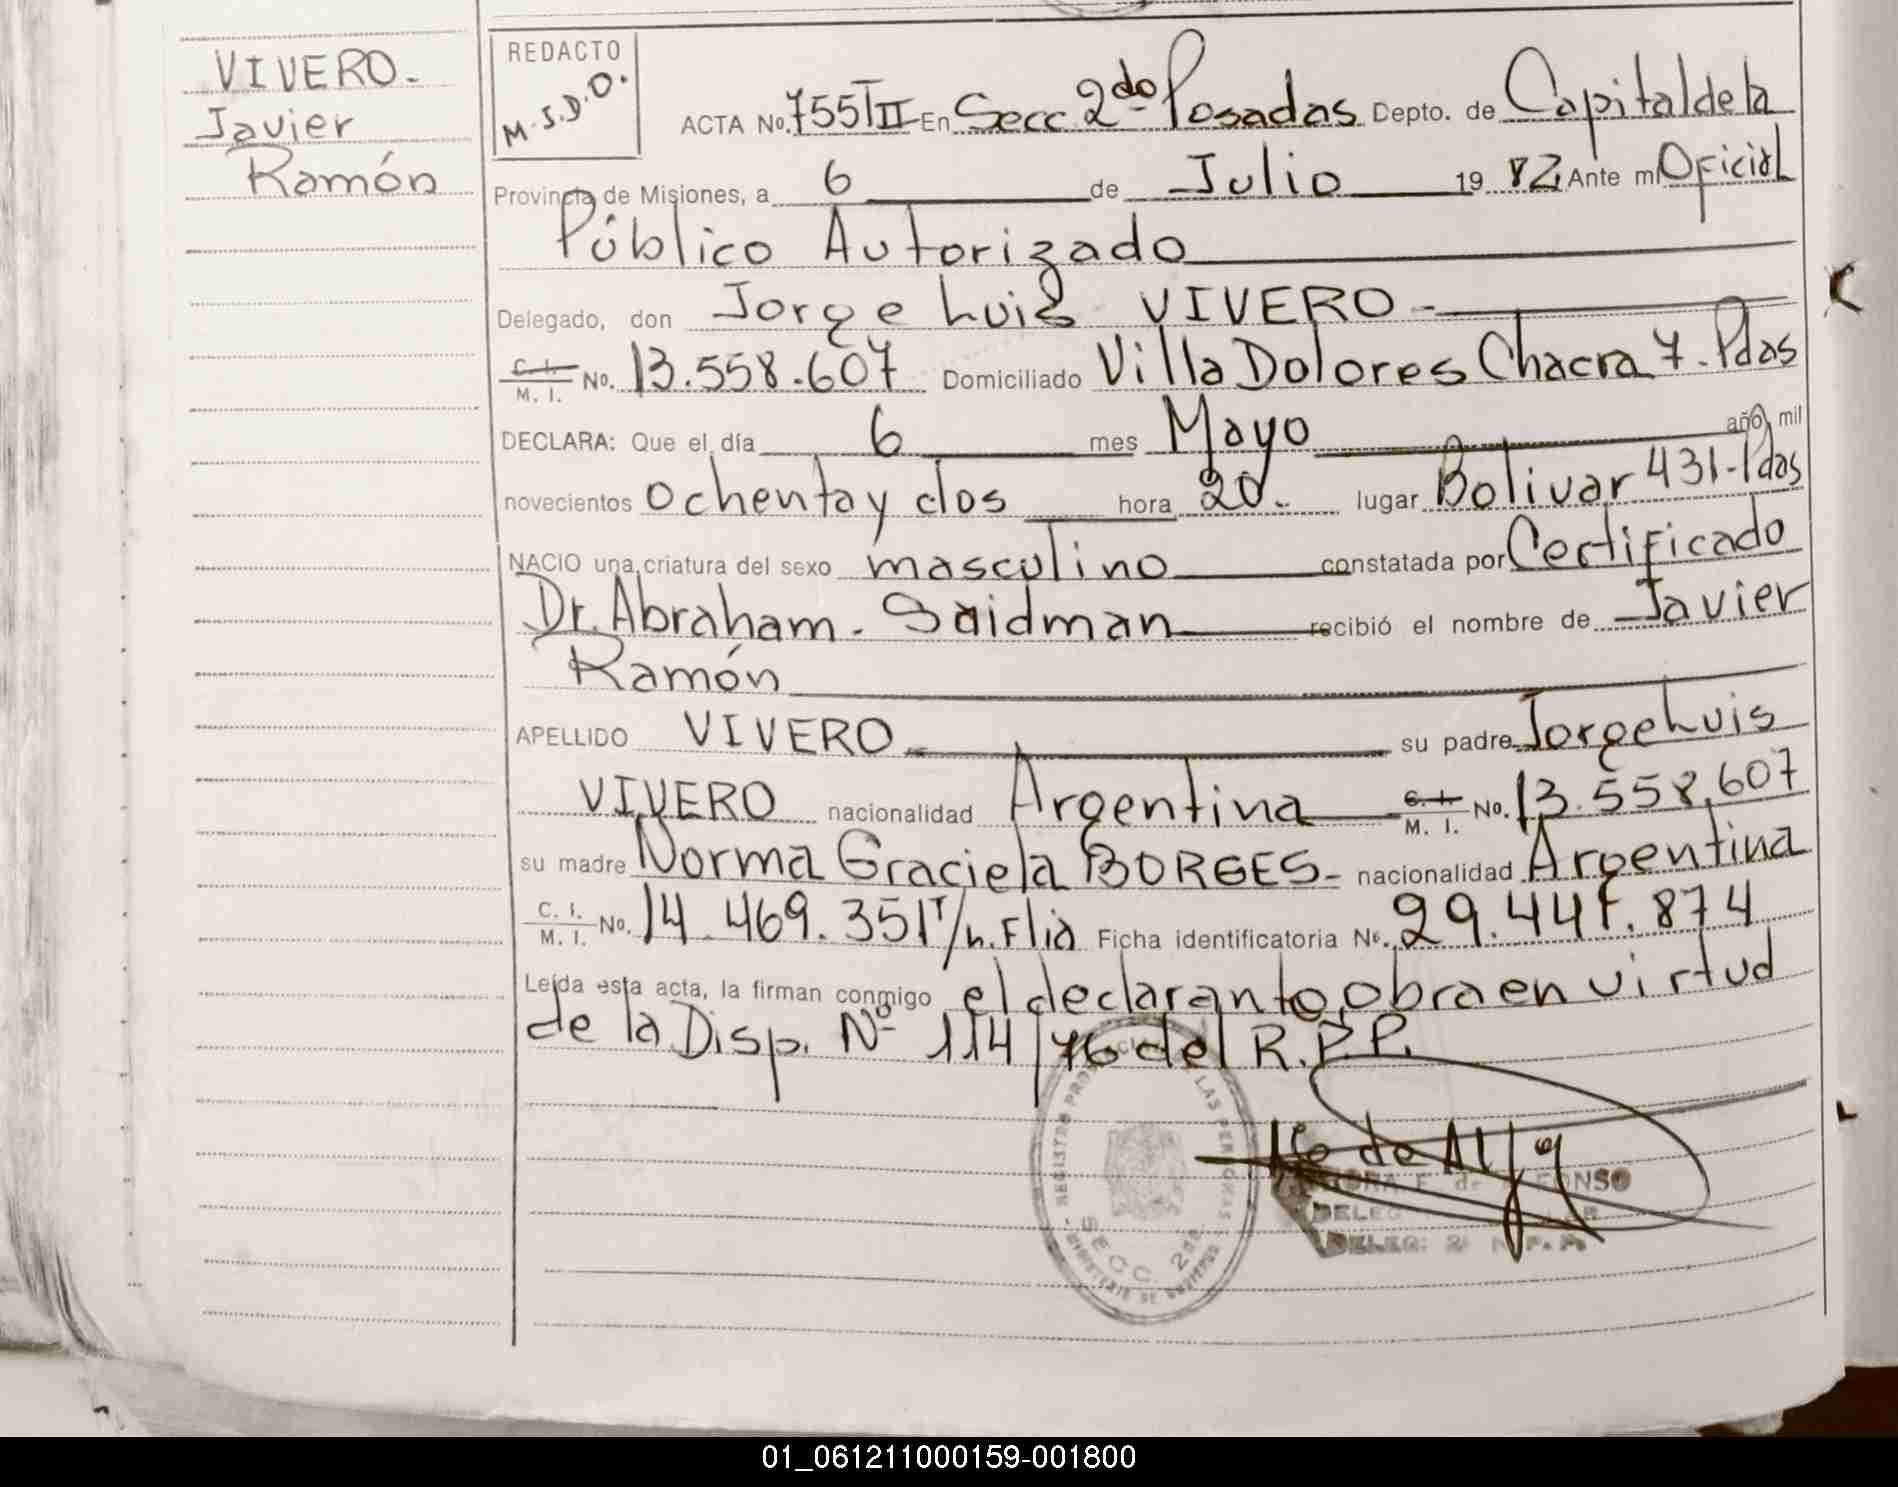 VIVERO.
Javier
Ramón
REDACTO
M.S.D.O.
ACTA No. 755 TII En Secc 2do Posadas Depto. de Capital de la
Provincia de Misiones, a 6 de Julio 19 82, Ante mí Oficial
Público Autorizado
Delegado, don Jorge Luis VIVERO -
C. I. M. I. No. 13.558.607 Domiciliado Villa Dolores Chacra 7. Pdas
DECLARA: Que el día 6 mes Mayo año mil
novecientos ochenta y dos hora 20. lugar Bolivar 431-Pdas
NACIO una criatura del sexo masculino constatada por Certificado
Dr. Abraham. Saidman recibió el nombre de Javier
Ramón
APELLIDO VIVERO su padre Jorge Luis
VIVERO nacionalidad Argentina C. I. M. I. No. 13.558,607
su madre Norma Graciela BORGES- nacionalidad Argentina
C. I. M. I. No. 14.469.351 T/n.Flia Ficha identificatoria No. 29.447.874
Leída esta acta, la firman conmigo el declarante, obra en virtud
de la Disp. Nº 114/76 del R.P.P.
REGISTRO LAS PERSONAS
SECC. 2da
de ALFONSO
DELEG: 2
01_061211000159-001800